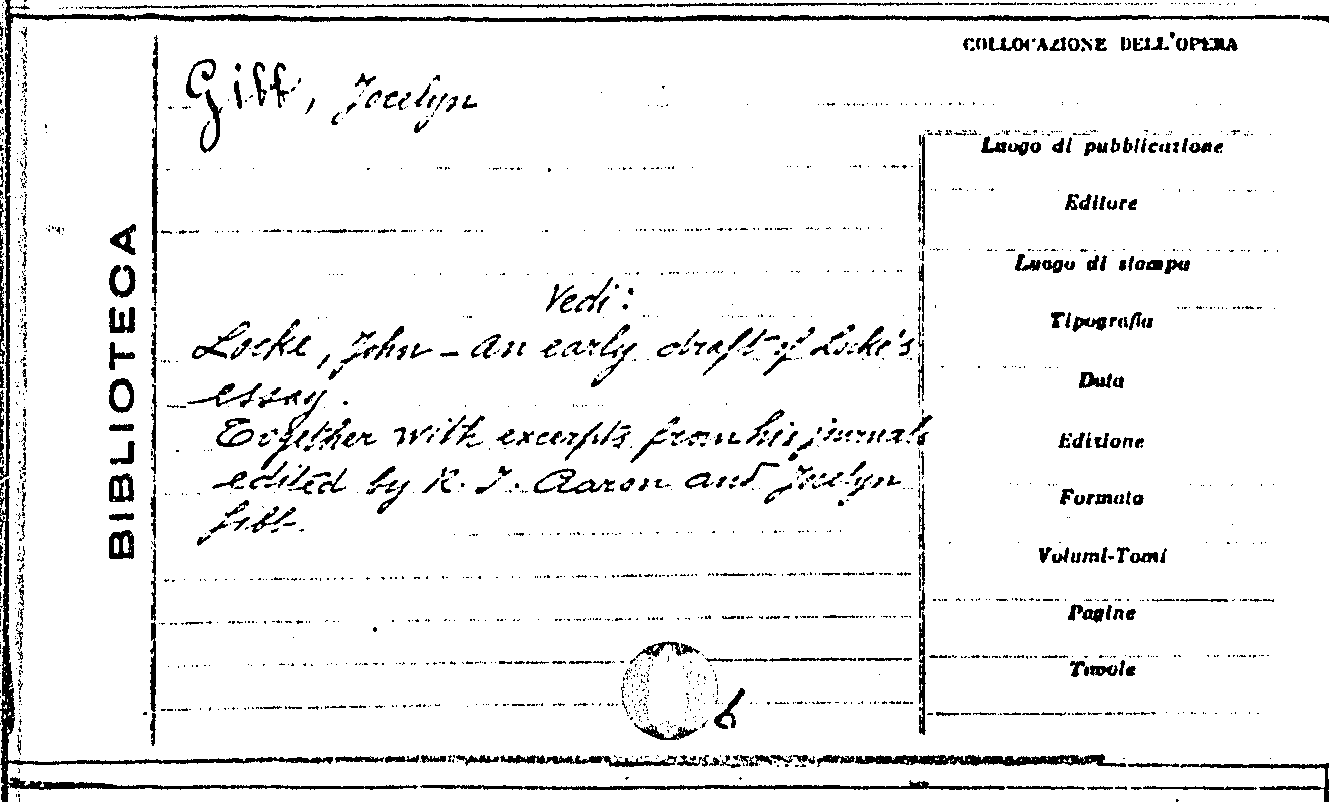 COLLOCAZIONE DELL'OPERA
Gibb, Jocelyn
Luogo di pubblicazione
Editore
Luogo di stampa
Tipografia
Data
Edizione
Formato
Volumi-Tomi
Pagine
Tavole
BIBLIOTECA
Vedi:
Locke, John – An early draft of Locke's
essay.
Together with excerpts from his journals
edited by R. I. Aaron and Jocelyn
Gibb.
b